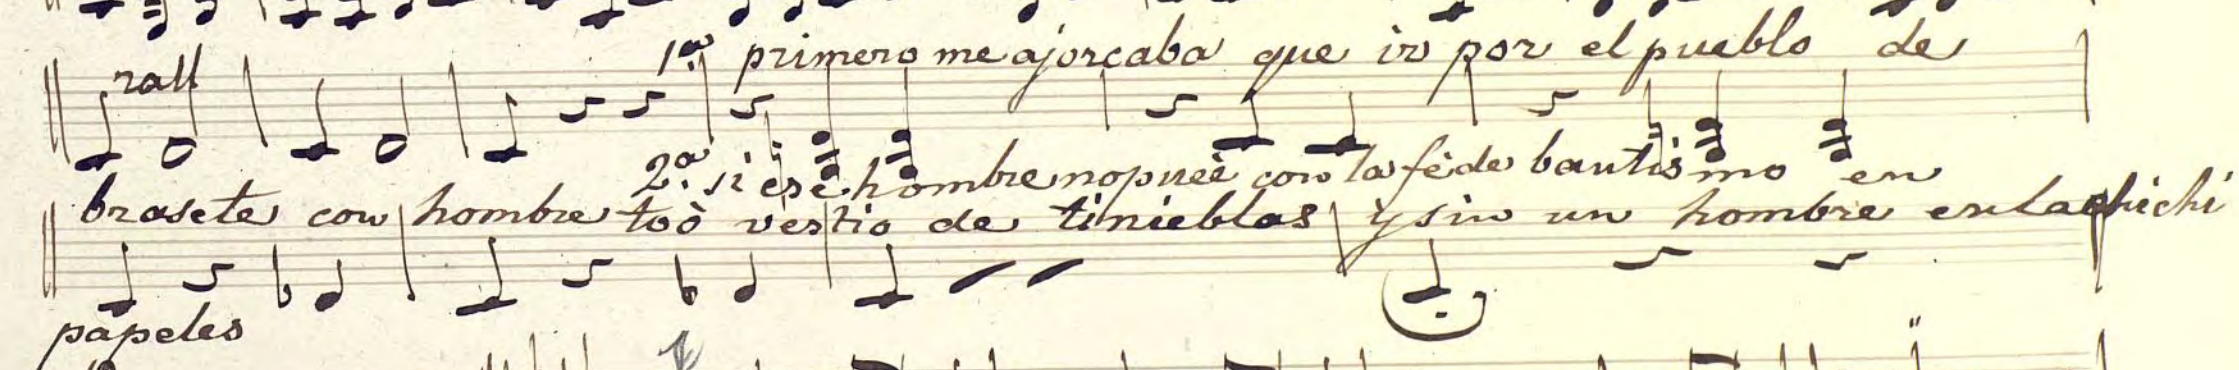 rall 1ª primero me ajorcaba que ir por el pueblo de
2ª si ese hombre no pueè con la fè de bautismo en
brasete con hombre toò vestio de tinieblas y sin un hombre en la chichi
papeles